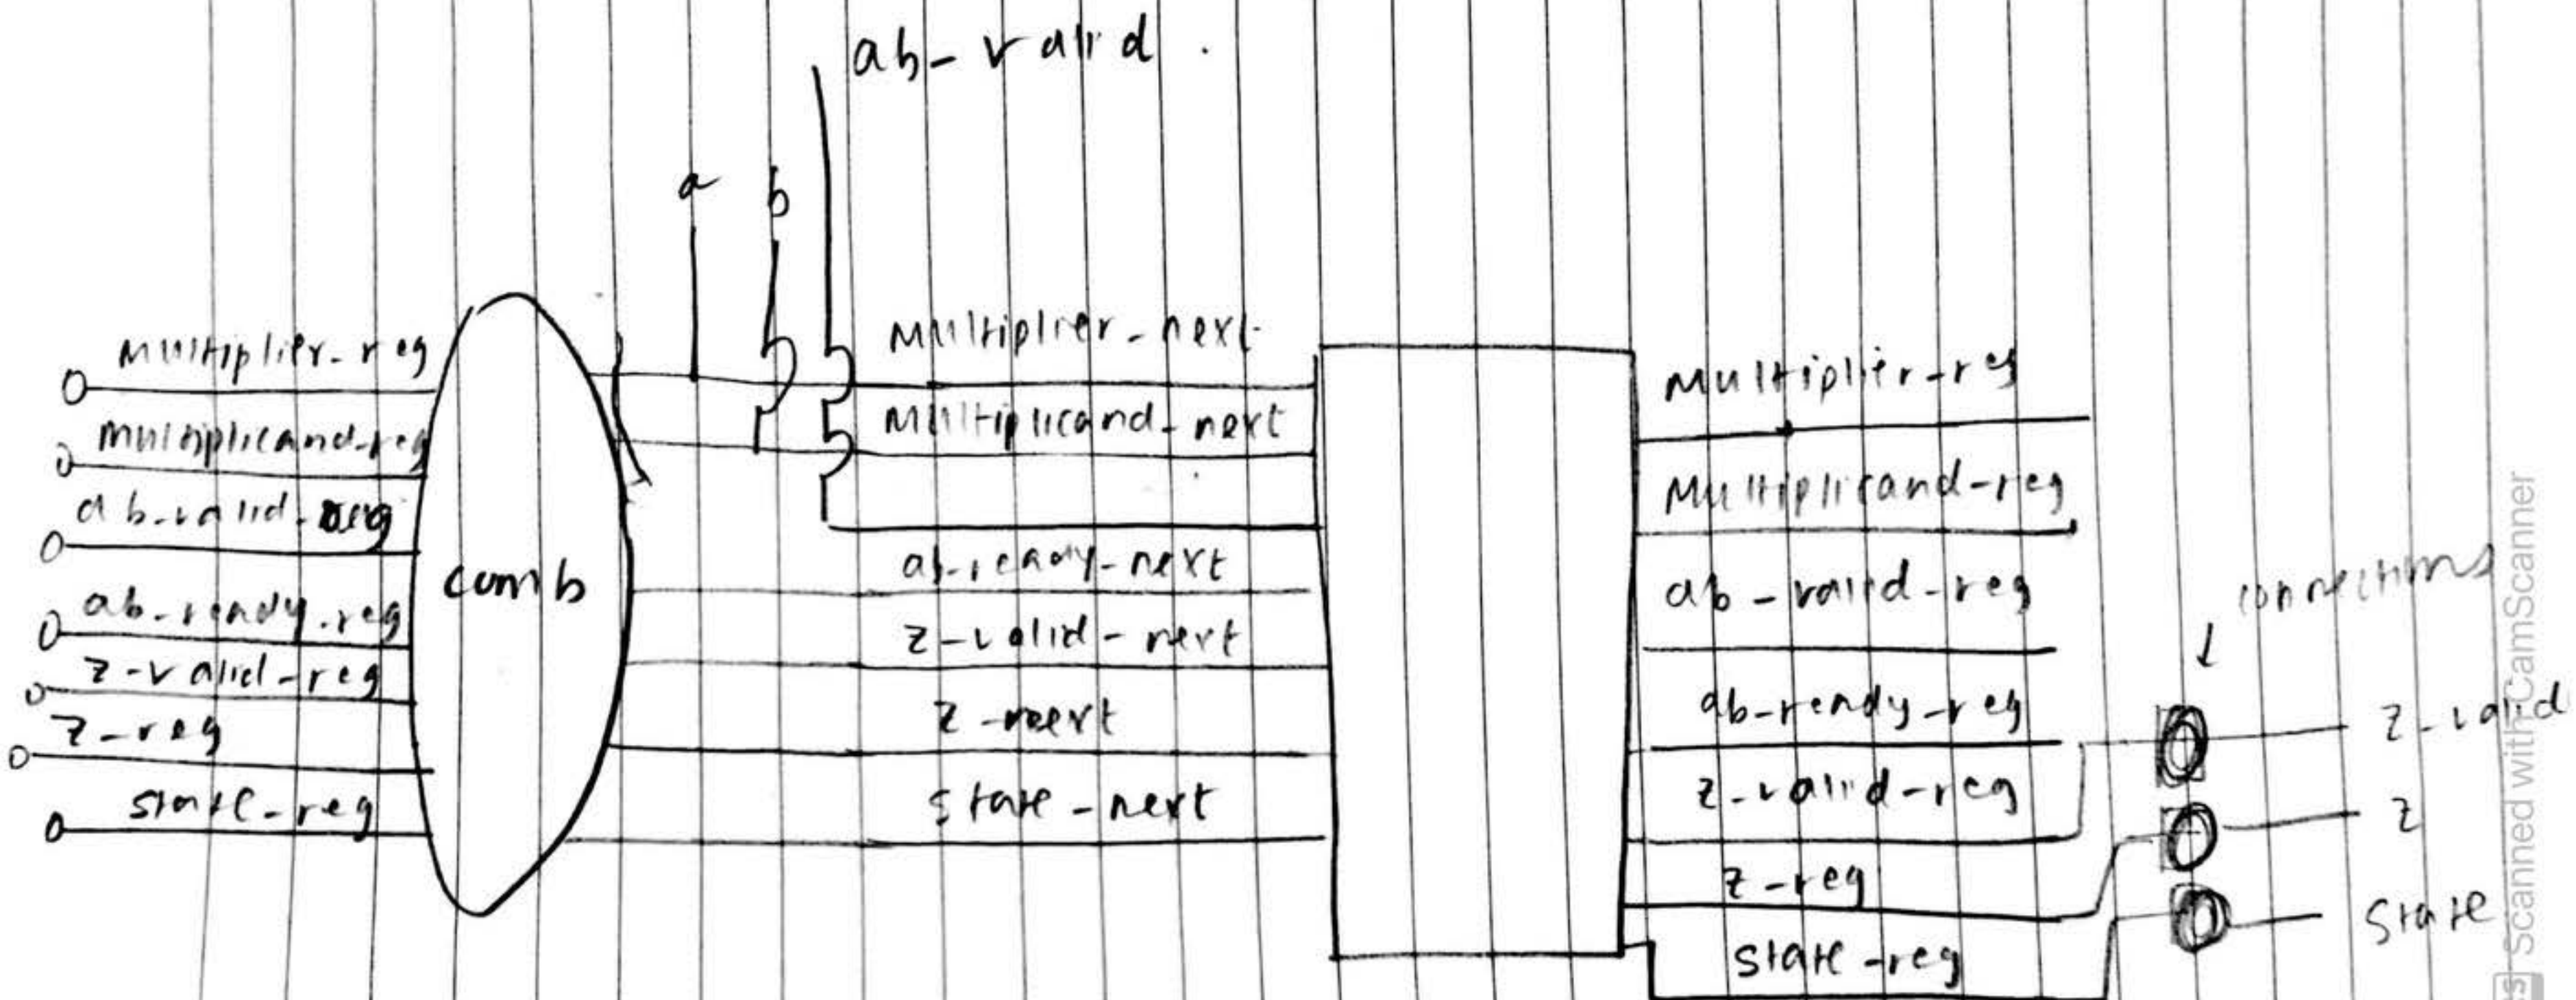 ab-valid.
a b
multiplier-reg
multiplicand-reg
ab-valid-reg
ab-ready-reg
z-valid-reg
z-reg
state-reg
comb
multiplier-next
multiplicand-next
ab-ready-next
z-valid-next
z-next
state-next
multiplier-reg
multiplicand-reg
ab-valid-reg
ab-ready-reg
z-valid-reg
z-reg
state-reg
connections
z-valid
z
state
CS Scanned with CamScanner